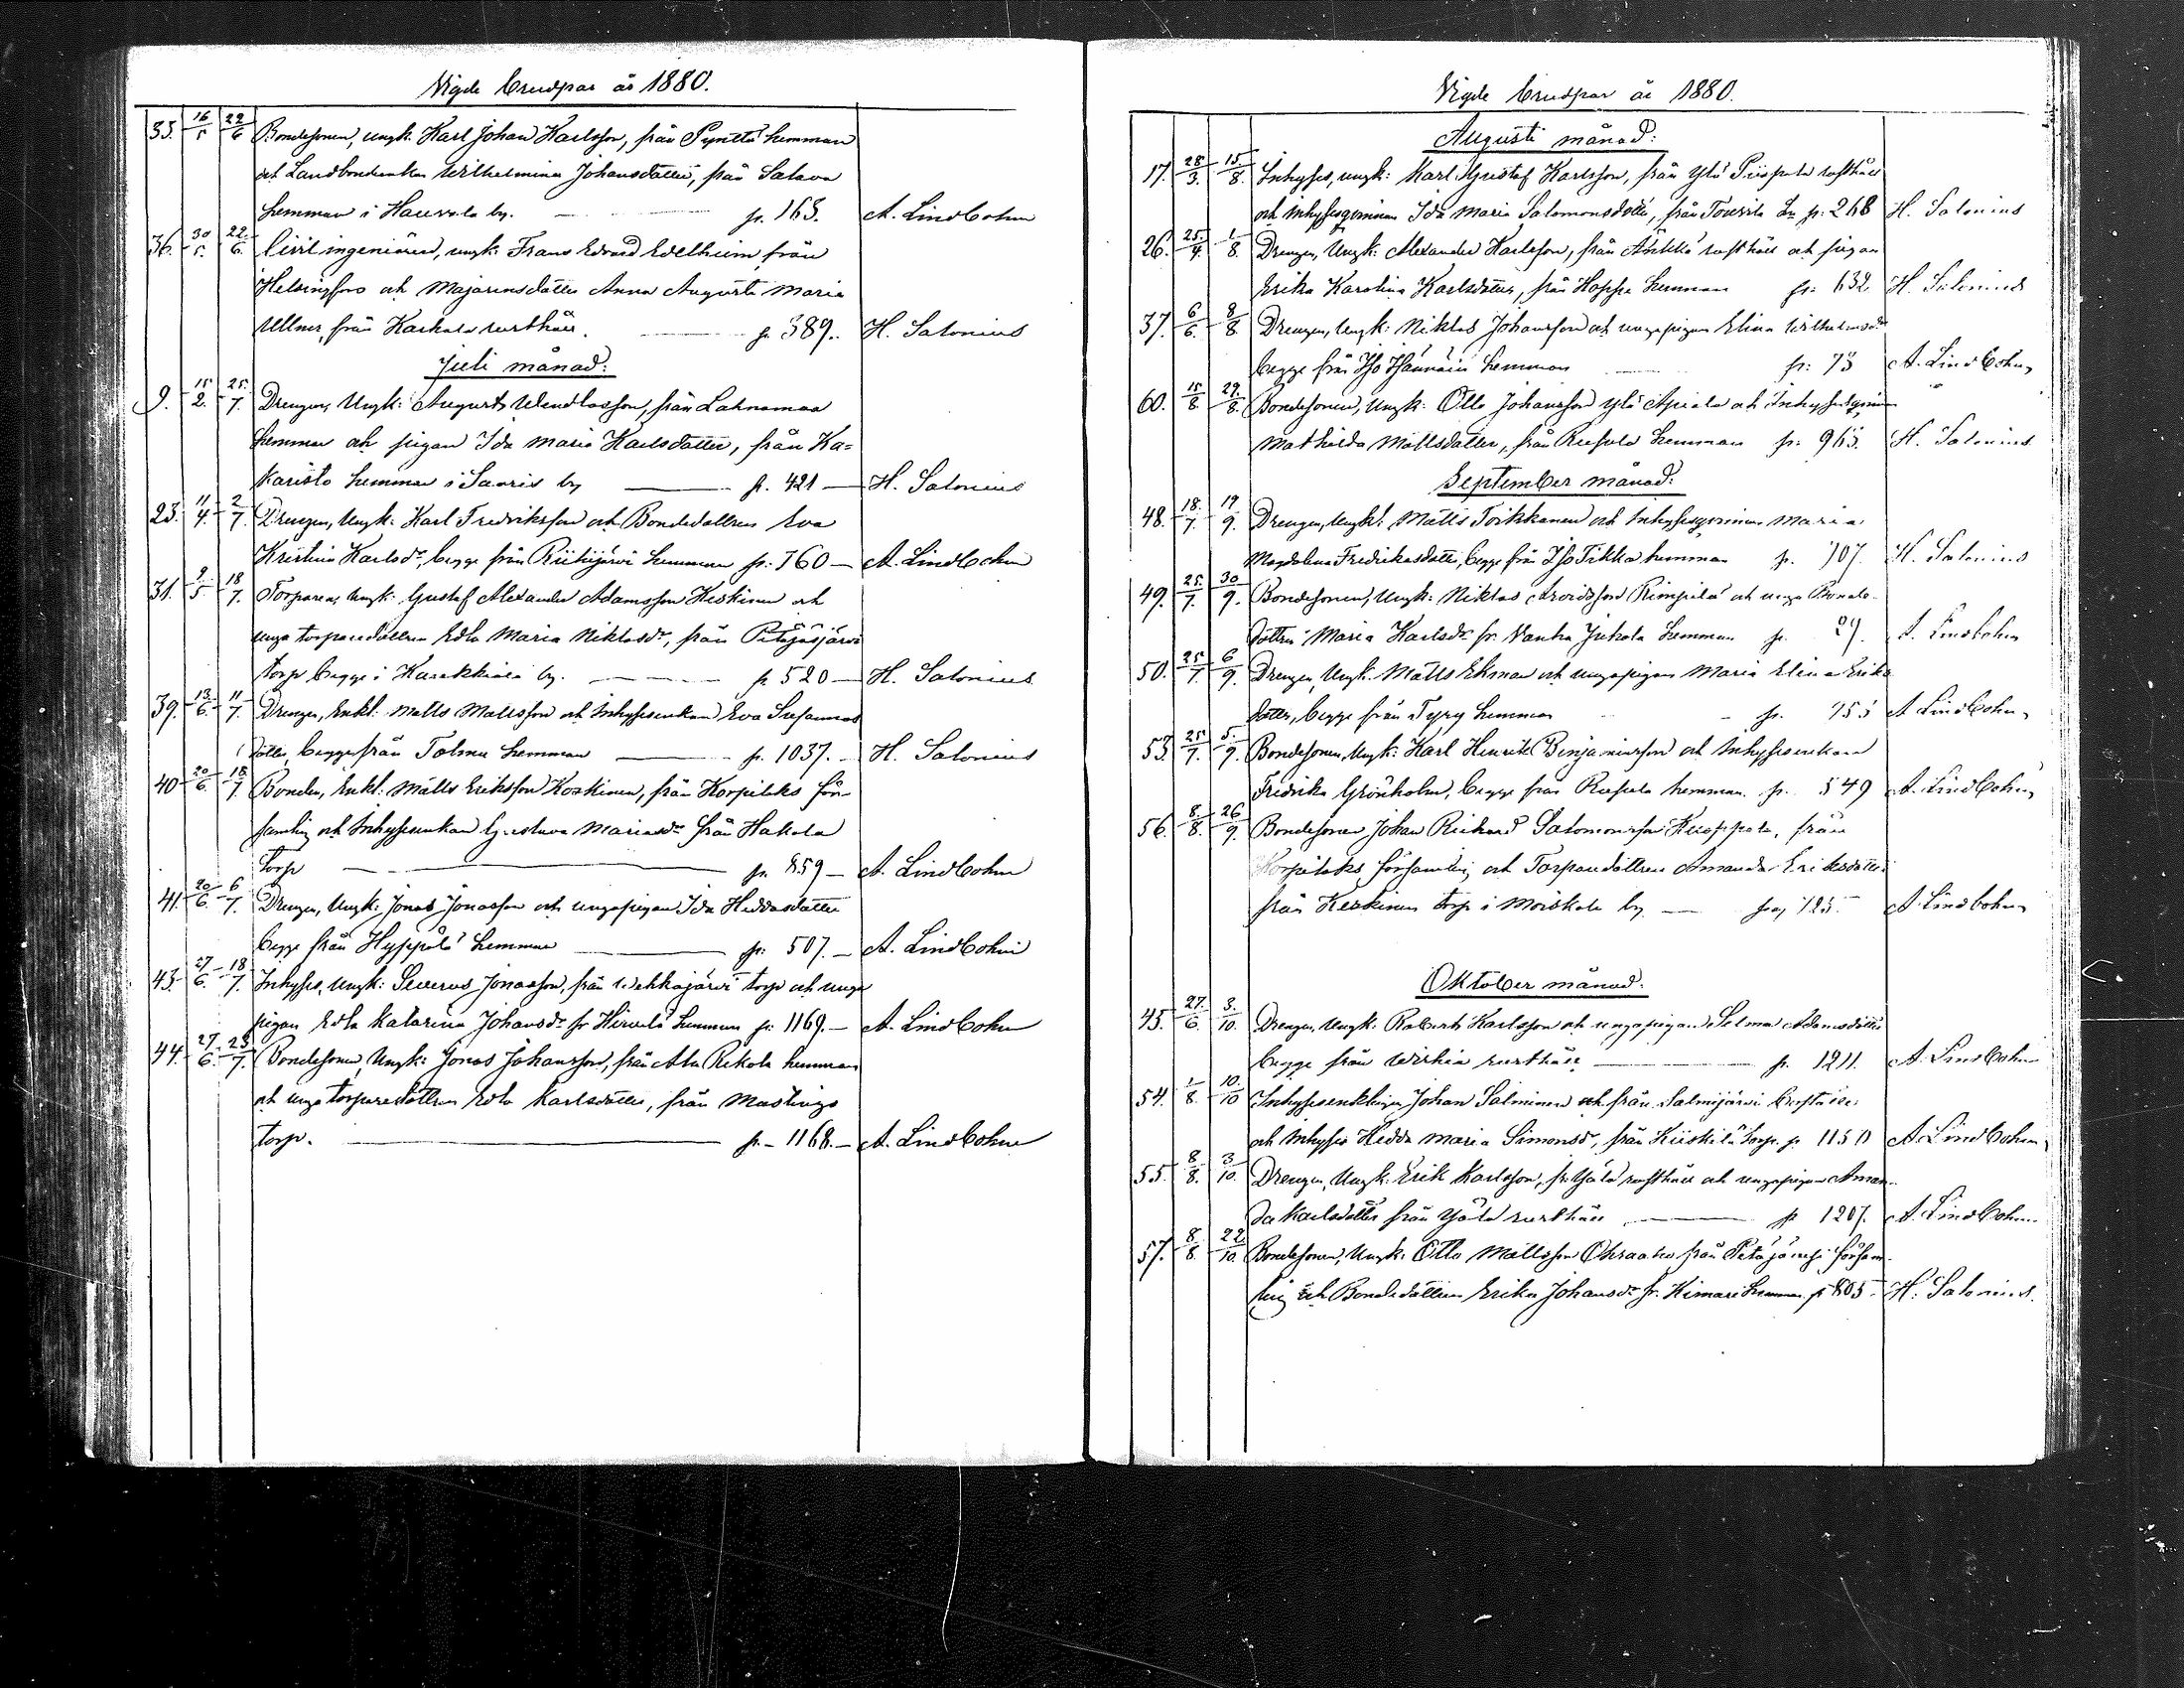 Vigde brudpar år 1880.
35. 16/5 22/6 Bondesonen, ungk. Karl Johan Karlsson, från Pynttä hemman
och Landbondenkan Wilhelmina Johansdotter, från Salava
hemman i Hauvala by. p. 163. A. Lindbohm
36. 30/5. 22/6. Civilingeniören, ungk. Frans Edvard Edelheim, från
Helsingfors och Majorensdotter Anna Augusta Maria
Ullner, från Karkola rusthåll. p. 389. H. Salonius
Juli månad:
9. 15/2. 25/7. Drengen, Ungk: August Wendlasson, från Lahnamaa
hemman och pigan Ida Maria Karlsdotter, från Ka=
karisto hemman i Sauris by p. 421 — H. Salonius
23. 11/4. 2/7. Drengen, Ungk: Karl Fredriksson och Bondedottren Eva
Kristina Karlsdr, begge från Riihijärvi hemman p. 760 — A. Lindbohm
31. 9/5 18/7. Torparen, Ungk: Gustaf Alexander Adamsson Heskinen och
unga torparedottren Edla Maria Niklasdr, från Petäjäsjärvi
torp begge i Kurkkiala by. p. 520 — H. Salonius
39. 13/6. 11/7. Drengen, Enkl: Matts Mattsson och Inhysesenkan Eva Susannas
dotter, begge från Tolmu hemman p. 1037. — H. Salonius
40 20/6. 18/7. Bonden, Enkl: Matts Eriksson Koskinen, från Korpilaks för-
samling och Inhysesenkan Gustava Mariasdr från Hakola
torp p. 859 — A. Lindbohm
41. 20/6. 6/7. Drengen, Ungk: Jonas Jonasson och ungapigan Ida Heddasdotter
begge från Hyppälä hemman p. 507. — A. Lindbohm
43. 27/6. 18/7. Inhyses, Ungk: Severus Jonasson, från Wehkajärvi torp och unga
pigan Edla Katarina Johansdr fr Hirvelä hemman p. 1169. — A. Lindbohm
44. 27/6. 23/7. Bondesonen, Ungk: Jonas Johansson, från Ala Rekola hemman
och unga torparedottren Edla Karlsdotter, från Mastings
torp. p. — 1168. — A. Lindbohm
Vigde brudpar år 1880.
Augusti månad:
17. 28/3. 15/8. Inhyses, ungk: Karl Gustaf Karlsson, från Ylä Piispala rusthåll
och Inhysesqvinnan Ida Maria Salomonsdotter, från Tourila p. 268 H. Salonius
26. 25/4. 1/8. Drengen, Ungk: Alexander Karlsson, från Änkkä rusthåll och pigan
Erika Karolina Karlsdotter, från Hoppe hemman p. 632. H. Salonius
37. 6/6. 8/8. Drengen, Ungk: Niklas Johansson och ungapigan Elina Wilhelmsdr
begge från Iso hemman p: 73 A. Lindbohm
60. 15/8. 29/8. Bondesonen, Ungk: Otto Johansson Ylä Apiala och
Mathilda Mattsdotter, från Rupula hemman p: 963. H. Salonius
September månad:
48. 18/7. 19/9. Drengen, Ungk: Matts Toikkanen och Inhysesqvinnan Maria
Magdalena Fredrikasdotter, begge från Iso Tikka hemman p. 707. H. Salonius
49. 25/7. 30/9. Bondesonen, Ungk: Niklas Arvidsson Rimpilä och unga Bonde-
dottren Maria Karlsdr fr. Vanha Jukola hemman p. 29. A. Lindbohm
50. 25/7 6/9. Drengen, Ungk: Matts Ekman och ungapigan Maria Elina Erik's
dotter, begge från Tyry hemman p. 753 A. Lindbohm
53. 25/7. 5/9. Bondesonen, Ungk: Karl Henrik Benjaminsson och Inhysesenkan
Fredrika Grönholm, begge från Rupula hemman. p. 549 A. Lindbohm
56. 8/8. 26/9. Bondesonen Johan Richard Salomonsson Kuoppala, från
Korpilaks församling och Torparedottren Amanda Eriksdotter
från Keskinen torp i Moiskala by p. 725. A. Lindbohm
Oktober månad:
45. 27/6. 3/10. Drengen, Ungk: Robert Karlsson och ungapigan Selma Adamsdotter
begge från Wirkia rusthåll p. 1211. A. Lindbohm
54. 1/8. 10/10 Inhysesenklingen Johan Salminen och från Salmijärvi
och Inhyses Hedda Maria Simonsdr, från Kiiskilä torp. p. 1150 A. Lindbohm
55. 8/8. 3/10. Drengen, Ungk: Erik Karlsson, fr. Yjälä rusthåll och ungapigan Aman-
da Karlsdotter från Yjälä rusthåll p. 1207. A. Lindbohm
57. 8/8. 22/10. Bondesonen, Ungk: Otto Mattsson Ohraaho från Petäjävesi försam-
ling och Bondedottren Erika Johansdr fr. Kimari hemman p. 805. H. Salonius.